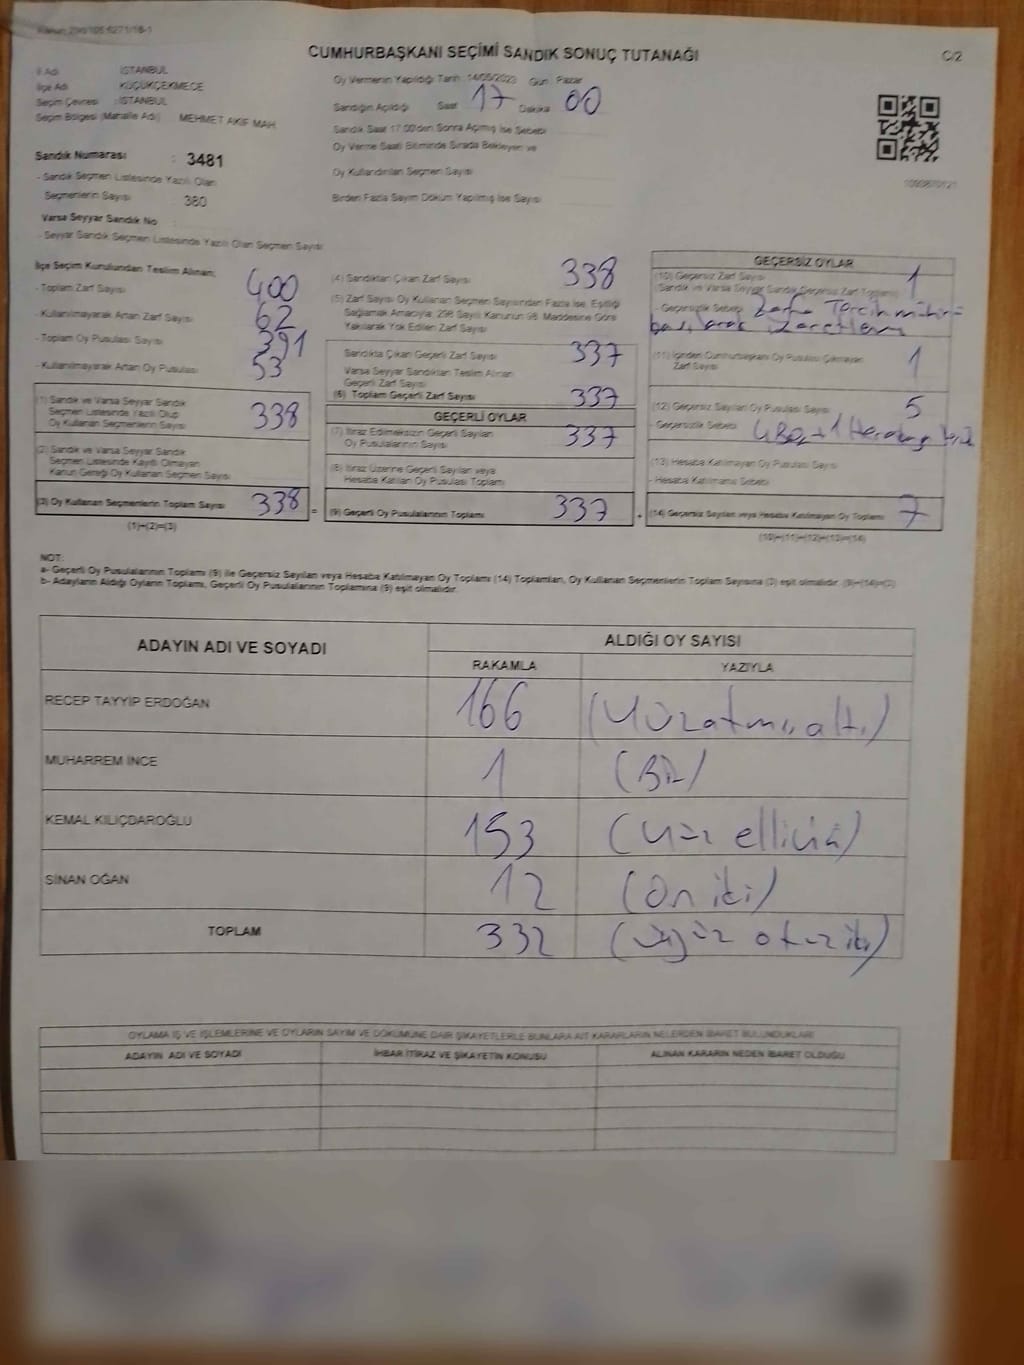 CUMHURBAŞKANI SEÇİMİ SANDIK SONUÇ TUTANAĞI
C/2
İl Adı İSTANBUL
İlçe Adı KÜÇÜKÇEKMECE
Seçim Çevresi : İSTANBUL
Seçim Bölgesi (Mahalle Adı) MEHMET AKİF MAH.
Sandık Numarası : 3481
- Sandık Seçmen Listesinde Yazılı Olan
Seçmenlerin Sayısı : 380
Varsa Seyyar Sandık No
- Seyyar Sandık Seçmen Listesinde Yazılı Olan Seçmen Sayısı
Oy Vermenin Yapıldığı Tarih : 14/05/2023 Gün : Pazar
Sandığın Açıldığı Saat 17 Dakika 00
Sandık Saat 17.00'den Sonra Açılmış İse Sebebi
Oy Verme Saati Bitiminde Sırada Bekleyen ve
Oy Kullandırılan Seçmen Sayısı
Birden Fazla Sayım Döküm Yapılmış İse Sayısı
İlçe Seçim Kurulundan Teslim Alınan;
- Toplam Zarf Sayısı 400
- Kullanılmayarak Artan Zarf Sayısı 62
- Toplam Oy Pusulası Sayısı 391
- Kullanılmayarak Artan Oy Pusulası 53
(1) Sandık ve Varsa Seyyar Sandık
Seçmen Listesinde Yazılı Olup
Oy Kullanan Seçmenlerin Sayısı 338
(2) Sandık ve Varsa Seyyar Sandık
Seçmen Listesinde Kayıtlı Olmayan
Kanun Gereği Oy Kullanan Seçmen Sayısı
(3) Oy Kullanan Seçmenlerin Toplam Sayısı 338
(1)+(2)=(3)
(4) Sandıktan Çıkan Zarf Sayısı 338
(5) Zarf Sayısı Oy Kullanan Seçmen Sayısından Fazla İse, Eşitliği
Sağlamak Amacıyla; 298 Sayılı Kanunun 98. Maddesine Göre
Yakılarak Yok Edilen Zarf Sayısı
Sandıkta Çıkan Geçerli Zarf Sayısı 337
Varsa Seyyar Sandıktan Teslim Alınan
Geçerli Zarf Sayısı
(6) Toplam Geçerli Zarf Sayısı 337
GEÇERLİ OYLAR
(7) İtiraz Edilmeksizin Geçerli Sayılan
Oy Pusulalarının Sayısı 337
(8) İtiraz Üzerine Geçerli Sayılan veya
Hesaba Katılan Oy Pusulası Toplamı
= (9) Geçerli Oy Pusulalarının Toplamı 337
GEÇERSİZ OYLAR
(10) Geçersiz Zarf Sayısı 1
(Sandık ve Varsa Seyyar Sandık Geçersiz Zarf Toplamı)
- Geçersizlik Sebebi Zarfa Tercih mührü
(11) İçinden Cumhurbaşkanı Oy Pusulası Çıkmayan
Zarf Sayısı 1
(12) Geçersiz Sayılan Oy Pusulası Sayısı 5
- Geçersizlik Sebebi 4 Boş + 1
(13) Hesaba Katılmayan Oy Pusula Sayısı
- Hesaba Katılmama Sebebi
+ (14) Geçersiz Sayılan veya Hesaba Katılmayan Oy Toplamı 7
(10)+(11)+(12)+(13)=(14)
NOT:
a- Geçerli Oy Pusulalarının Toplamı (9) ile Geçersiz Sayılan veya Hesaba Katılmayan Oy Toplamı (14) Toplamları, Oy Kullanan Seçmenlerin Toplam Sayısına (3) eşit olmalıdır. (9)+(14)=(3)
b- Adayların Aldığı Oyların Toplamı, Geçerli Oy Pusulalarının Toplamına (9) eşit olmalıdır.
ADAYIN ADI VE SOYADI ALDIĞI OY SAYISI
RAKAMLA YAZIYLA
RECEP TAYYİP ERDOĞAN 166 (Yüzatmışaltı)
MUHARREM İNCE 1 (Bir)
KEMAL KILIÇDAROĞLU 153 (Yüz elliüç)
SİNAN OĞAN 12 (On iki)
TOPLAM 332 (üçyüz otuz iki)
OYLAMA İŞ VE İŞLEMLERİNE VE OYLARIN SAYIM VE DÖKÜMÜNE DAİR ŞİKAYETLERLE BUNLARA AİT KARARLARIN NELERDEN İBARET BULUNDUKLARI
ADAYIN ADI VE SOYADI İHBAR İTİRAZ VE ŞİKAYETİN KONUSU ALINAN KARARIN NEDEN İBARET OLDUĞU